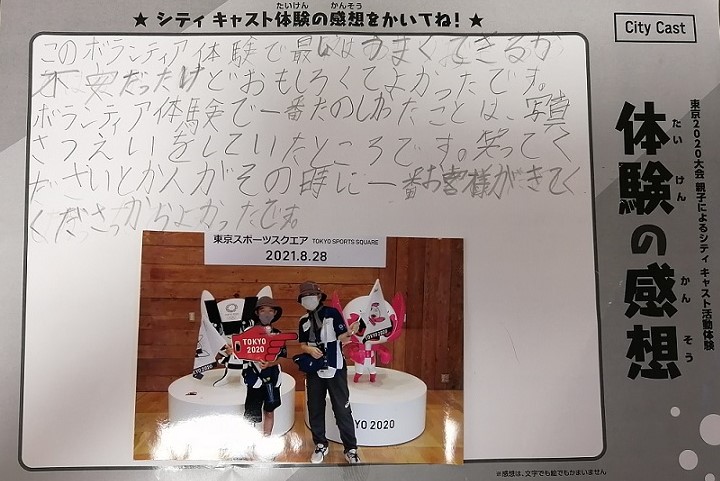 ★ シティ キャスト体験の感想をかいてね! ★
たいけん かんそう
City Cast
このボランティア体験で最初はうまくできるか
不安だったけどおもしろくてよかったです。
ボランティア体験で一番たのしかったことは、写真
さつえいをしていたところです。笑ってく
ださいとか人がその時に一番お客様がきてく
くださったからよかったです。
東京2020大会 親子によるシティ キャスト活動体験
体験の感想
たい けん かん そう
東京スポーツスクエア TOKYO SPORTS SQUARE
2021.8.28
TOKYO 2020
TOKYO 2020
※感想は、文字でも絵でもかまいません